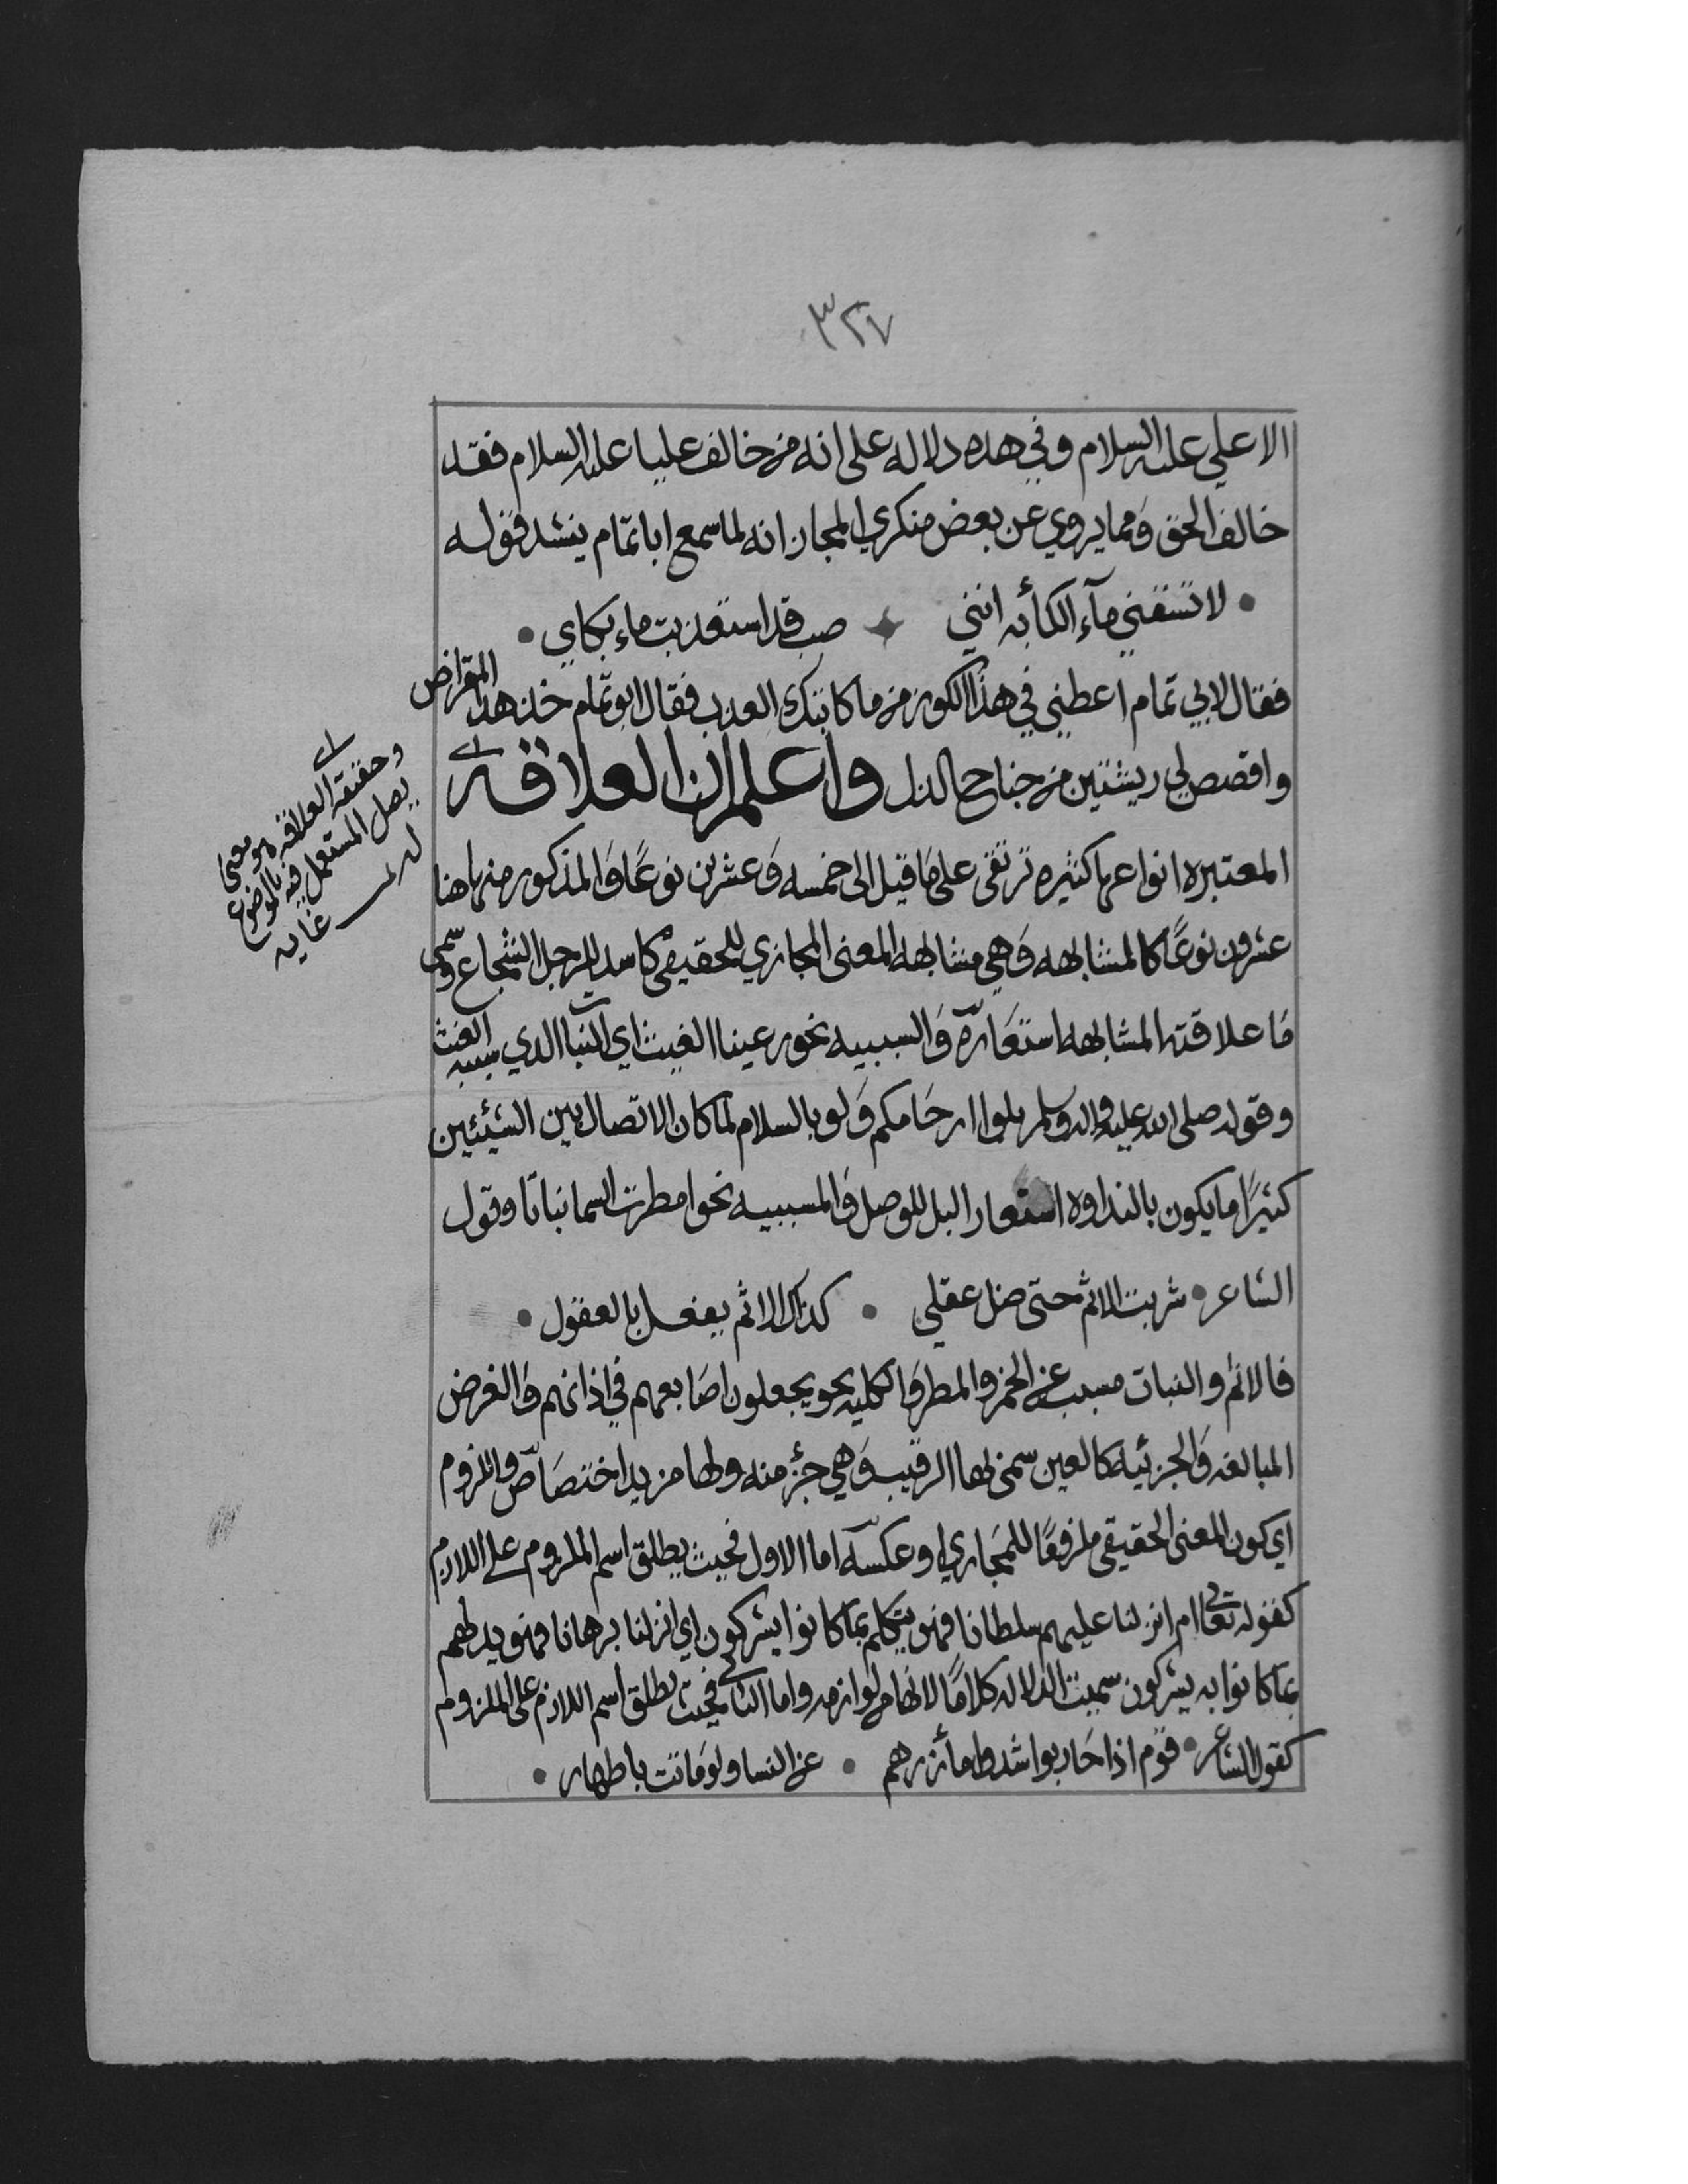 ٣٢٧
الا علي عليه السلام وفي هذه دلاله على انه من خالف عليا عليه السلام فقد
خالف الحق وَمما يروي عن بعض منكري المجاز انه لما سمع ابا تمام ينشد قوله
لا تسقني مآء الكأبه انني صب قد استعذبت ماء بكاي
فقال لابي تمام اعطني في هذا الكوز من ما كابتك العذب فقال ابو تمام خذ هذا المقراض
واقصص لي ريشتين من جناح الذل واعلم ان العلاقه
المعتبره انواعها كثيره ترتقى على مَا قيل الى خمسه وَعشرين نوعًا وَالمذكور منها هنا
عشرون نوعًا كالمشابهه وَهي مشابهه المعنى المجازي للحقيقي كاسد للرجل الشجاع وسمى
مَا علاقته المشابهه استعَارة وَالسببيه نحو رعينا الغيث اي النبات الذي سببه الغيث
وقوله صلى الله عليه واله وسلم بلوا ارحَامكم وَلو بالسلام لما كان الاتصال بين الشيئين
كثيرًا ما يكون بالنداوه استعار البل للوصل وَالمسببيه نحو امطرت السما نباتا وقول
الشاعر شربت الاثم حتى ضل عقلي كذاك الاثم يفعل بالعقول
فالاثم والنبات مسبب عن الخمر والمطر وَالكليه نحو يجعلون اصَابعهم في اذانهم وَالغرض
المبالغه وَالجزئيه كالعين سمي بها الرقيب وَهي جزؤ منه ولها مزيد اختصَاص واللزوم
اي كون المعنى الحقيقي ملزومًا للمجَازي او عكسه اما الاول فحيث يطلق اسم الملزوم على اللازم
كقوله تعالى ام انزلنا عليهم سلطانا فهو يتكلم بما كانوا يشركون اي انزلنا برهانا فهو يدلهم
بما كانوا به يشركون سميت الدلاله كلامًا لانها من لوازمه واما الثاني فحيث يطلق اسم اللازم على الملزوم
كقول الشاعر قوم اذا حَاربوا شدوا مأزرهم عن النسا ولو بَاتت باطهار
وحقيقة العلاقة هو معنى
يصل المستعمل فيه بالموضوع
له غايه